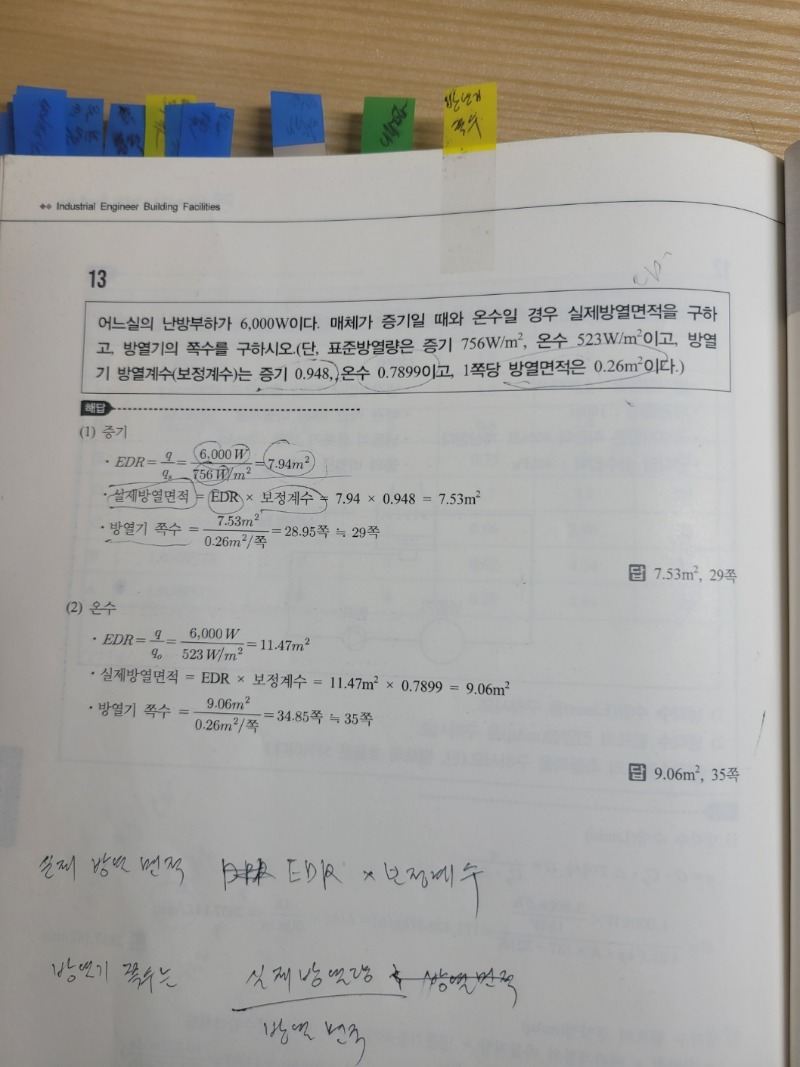 방열기
쪽수
Industrial Engineer Building Facilities
13
어느실의 난방부하가 6,000W이다. 매체가 증기일 때와 온수일 경우 실제방열면적을 구하
고, 방열기의 쪽수를 구하시오.(단, 표준방열량은 증기 756W/m², 온수 523W/m²이고, 방열
기 방열계수(보정계수)는 증기 0.948, 온수 0.7899이고, 1쪽당 방열면적은 0.26m²이다.)
해답
(1) 증기
· EDR = q/qs = 6,000 W / 756 W/m² = 7.94m²
· 실제방열면적 = EDR × 보정계수 = 7.94 × 0.948 = 7.53m²
· 방열기 쪽수 = 7.53m² / 0.26m²/쪽 = 28.95쪽 ≒ 29쪽
답 7.53m², 29쪽
(2) 온수
· EDR = q/qo = 6,000 W / 523 W/m² = 11.47m²
· 실제방열면적 = EDR × 보정계수 = 11.47m² × 0.7899 = 9.06m²
· 방열기 쪽수 = 9.06m² / 0.26m²/쪽 = 34.85쪽 ≒ 35쪽
답 9.06m², 35쪽
실제 방열 면적 EDR × 보정계수
방열기 쪽수는 실제 방열량 / 방열 면적